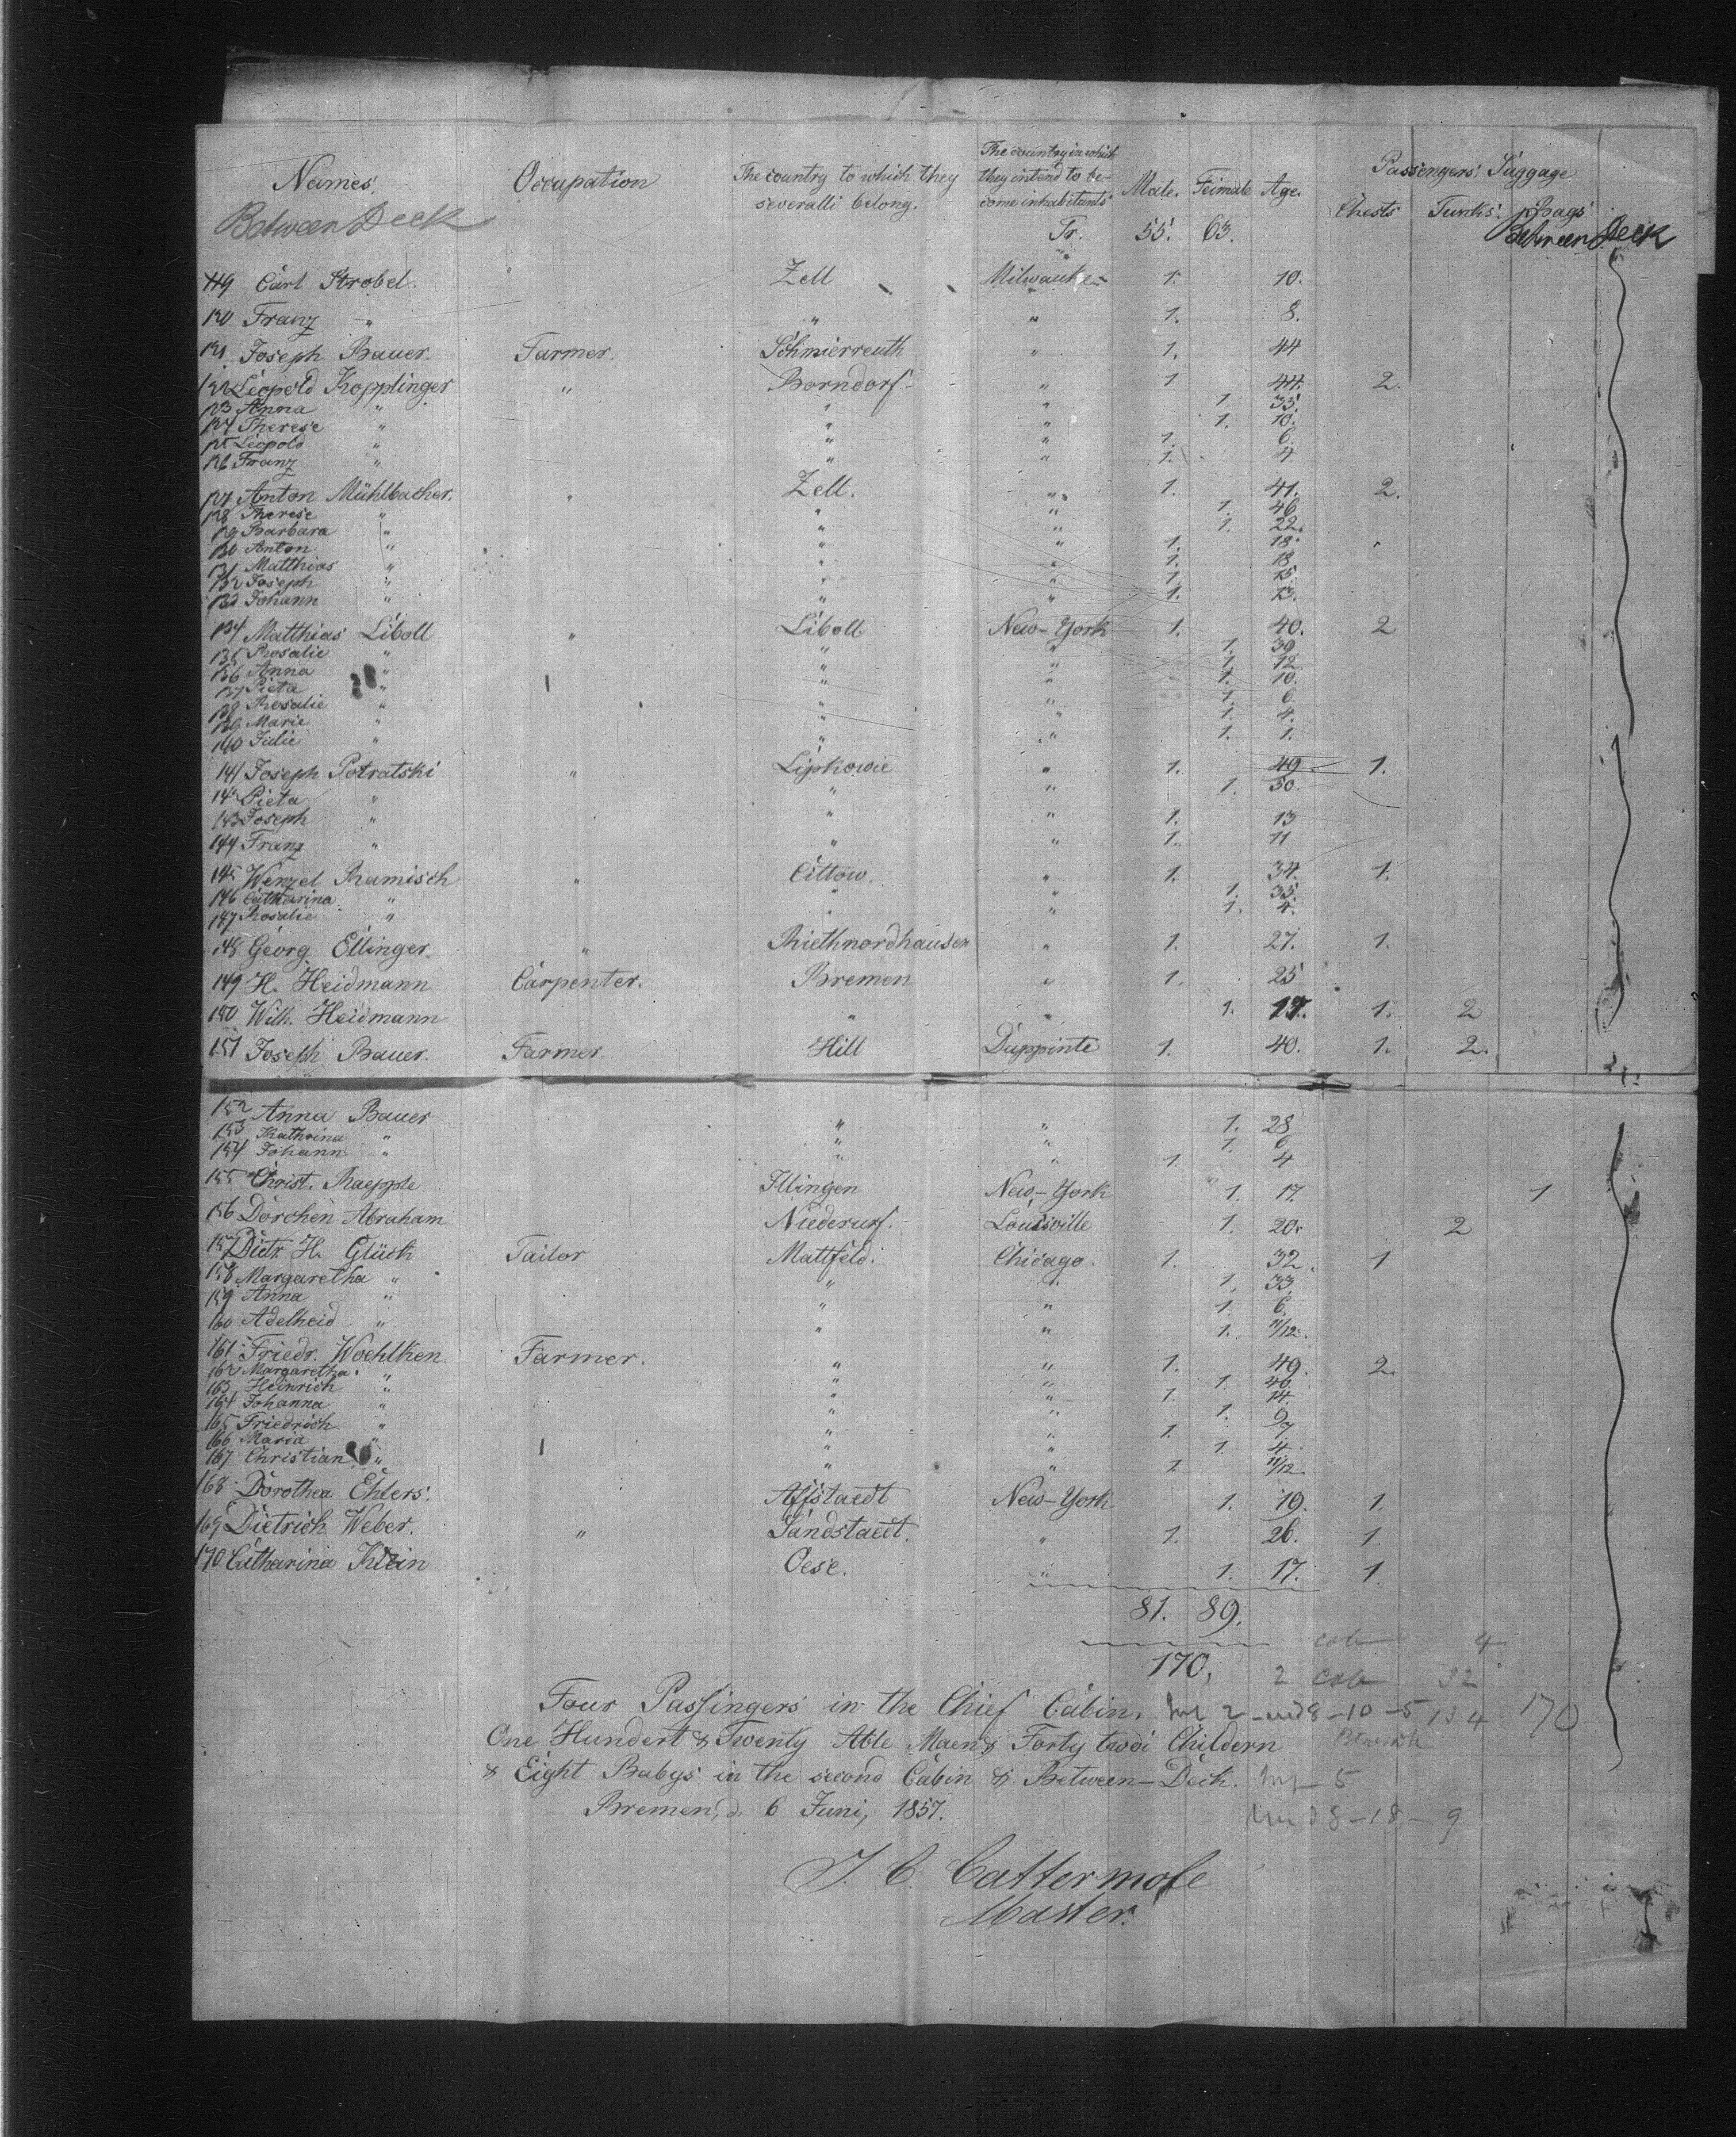 Names. Occupation The country to which they severalli belong. The country in which they intend to become inhabitants Male. Feimale Age. Passengers Luggage
Chests Tunks Bags
Between Deck Tr. 55. 63. Between Deck
119 Carl Strobel. Zell Milwaukee 1. 10.
120 Franz " " " 1. 8.
121 Joseph Bauer. Farmer. Schmierreuth " 1. 44
122 Leopold Kopplinger " Borndorf " 1 44. 2.
123 Anna " " " 1. 35.
124 Therese " " " 1. 10.
125 Leopold " " " 1. 6.
126 Franz " " " 1. 4.
127 Anton Mühlbacher. " Zell. " 1. 41. 2.
128 Therese " " " 1. 46
129 Barbara " " " 1. 22.
130 Anton " " " 1. 18.
131 Matthias " " " 1. 18
132 Joseph " " " 1. 15.
133 Johann " " " 1. 13.
134 Matthias Liboll " Liboll New-York 1. 40. 2
135 Rosalie " " " 1. 39
136 Anna " " " 1. 12
137 Pieta " " " 1. 10.
138 Rosalie " " " 1. 6
139 Marie " " " 1. 4.
140 Julie " " " 1. 1.
141 Joseph Potratski " Lipkowie " 1. 49 1.
142 Pieta " " " 1. 50.
143 Joseph " " " 1. 13
144 Franz " " " 1. 11
145 Wenzel Ramisch " Cittow. " 1. 34. 1.
146 Catharina " " " 1. 35.
147 Rosalie " " " 1. 4.
148 Georg Ellinger. " Riethnordhausen " 1. 27. 1.
149 H. Heidmann Carpenter. Bremen " 1. 25
150 Wilh. Heidmann " " 1. 17. 1. 2
151 Joseph Bauer. Farmer. Hill Duppinte 1. 40. 1. 2.
152 Anna Bauer " " 1. 28
153 Kathrina " " " 1. 6
154 Johann " " " 1. 4
155 Christ. Raepple Illingen New-York 1. 17. 1
156 Dorchen Abraham Niederurf. Louisville 1. 20. 2
157 Dietr. H. Glüsh Tailor Mattfeld. Chicago. 1. 32. 1
158 Margaretha " " " 1. 33.
159 Anna " " " 1. 6.
160 Adelheid " " " 1. 11/12.
161 Friedr. Woehlken. Farmer. " " 1. 49. 2.
162 Margaretha " " " 1. 40.
163 Heinrich " " " 1. 14.
164 Johanna " " " 1. 9
165 Friedrich " " " 1. 7
166 Maria " " " 1. 4.
167 Christian " " " 1. 11/12
168 Dorothea Ehlers. Affstaedt New-York 1. 19. 1.
169 Dietrich Weber. " Sandstaedt. " 1. 26. 1.
170 Catharina Klein Oese. " 1. 17. 1.
81. 89.
cab 4
170, 2 cab 32
Four Passingers in the Chief Cabin. 2 8-10-5 134 170
One Hundert & Twenty Able Maen & Forty twoi Childern
& Eight Babys in the second Cabin & Between-Deck. 5
Bremen, d. 6 Juni, 1857. 8-18-9
J. C. Cattermole
Master.